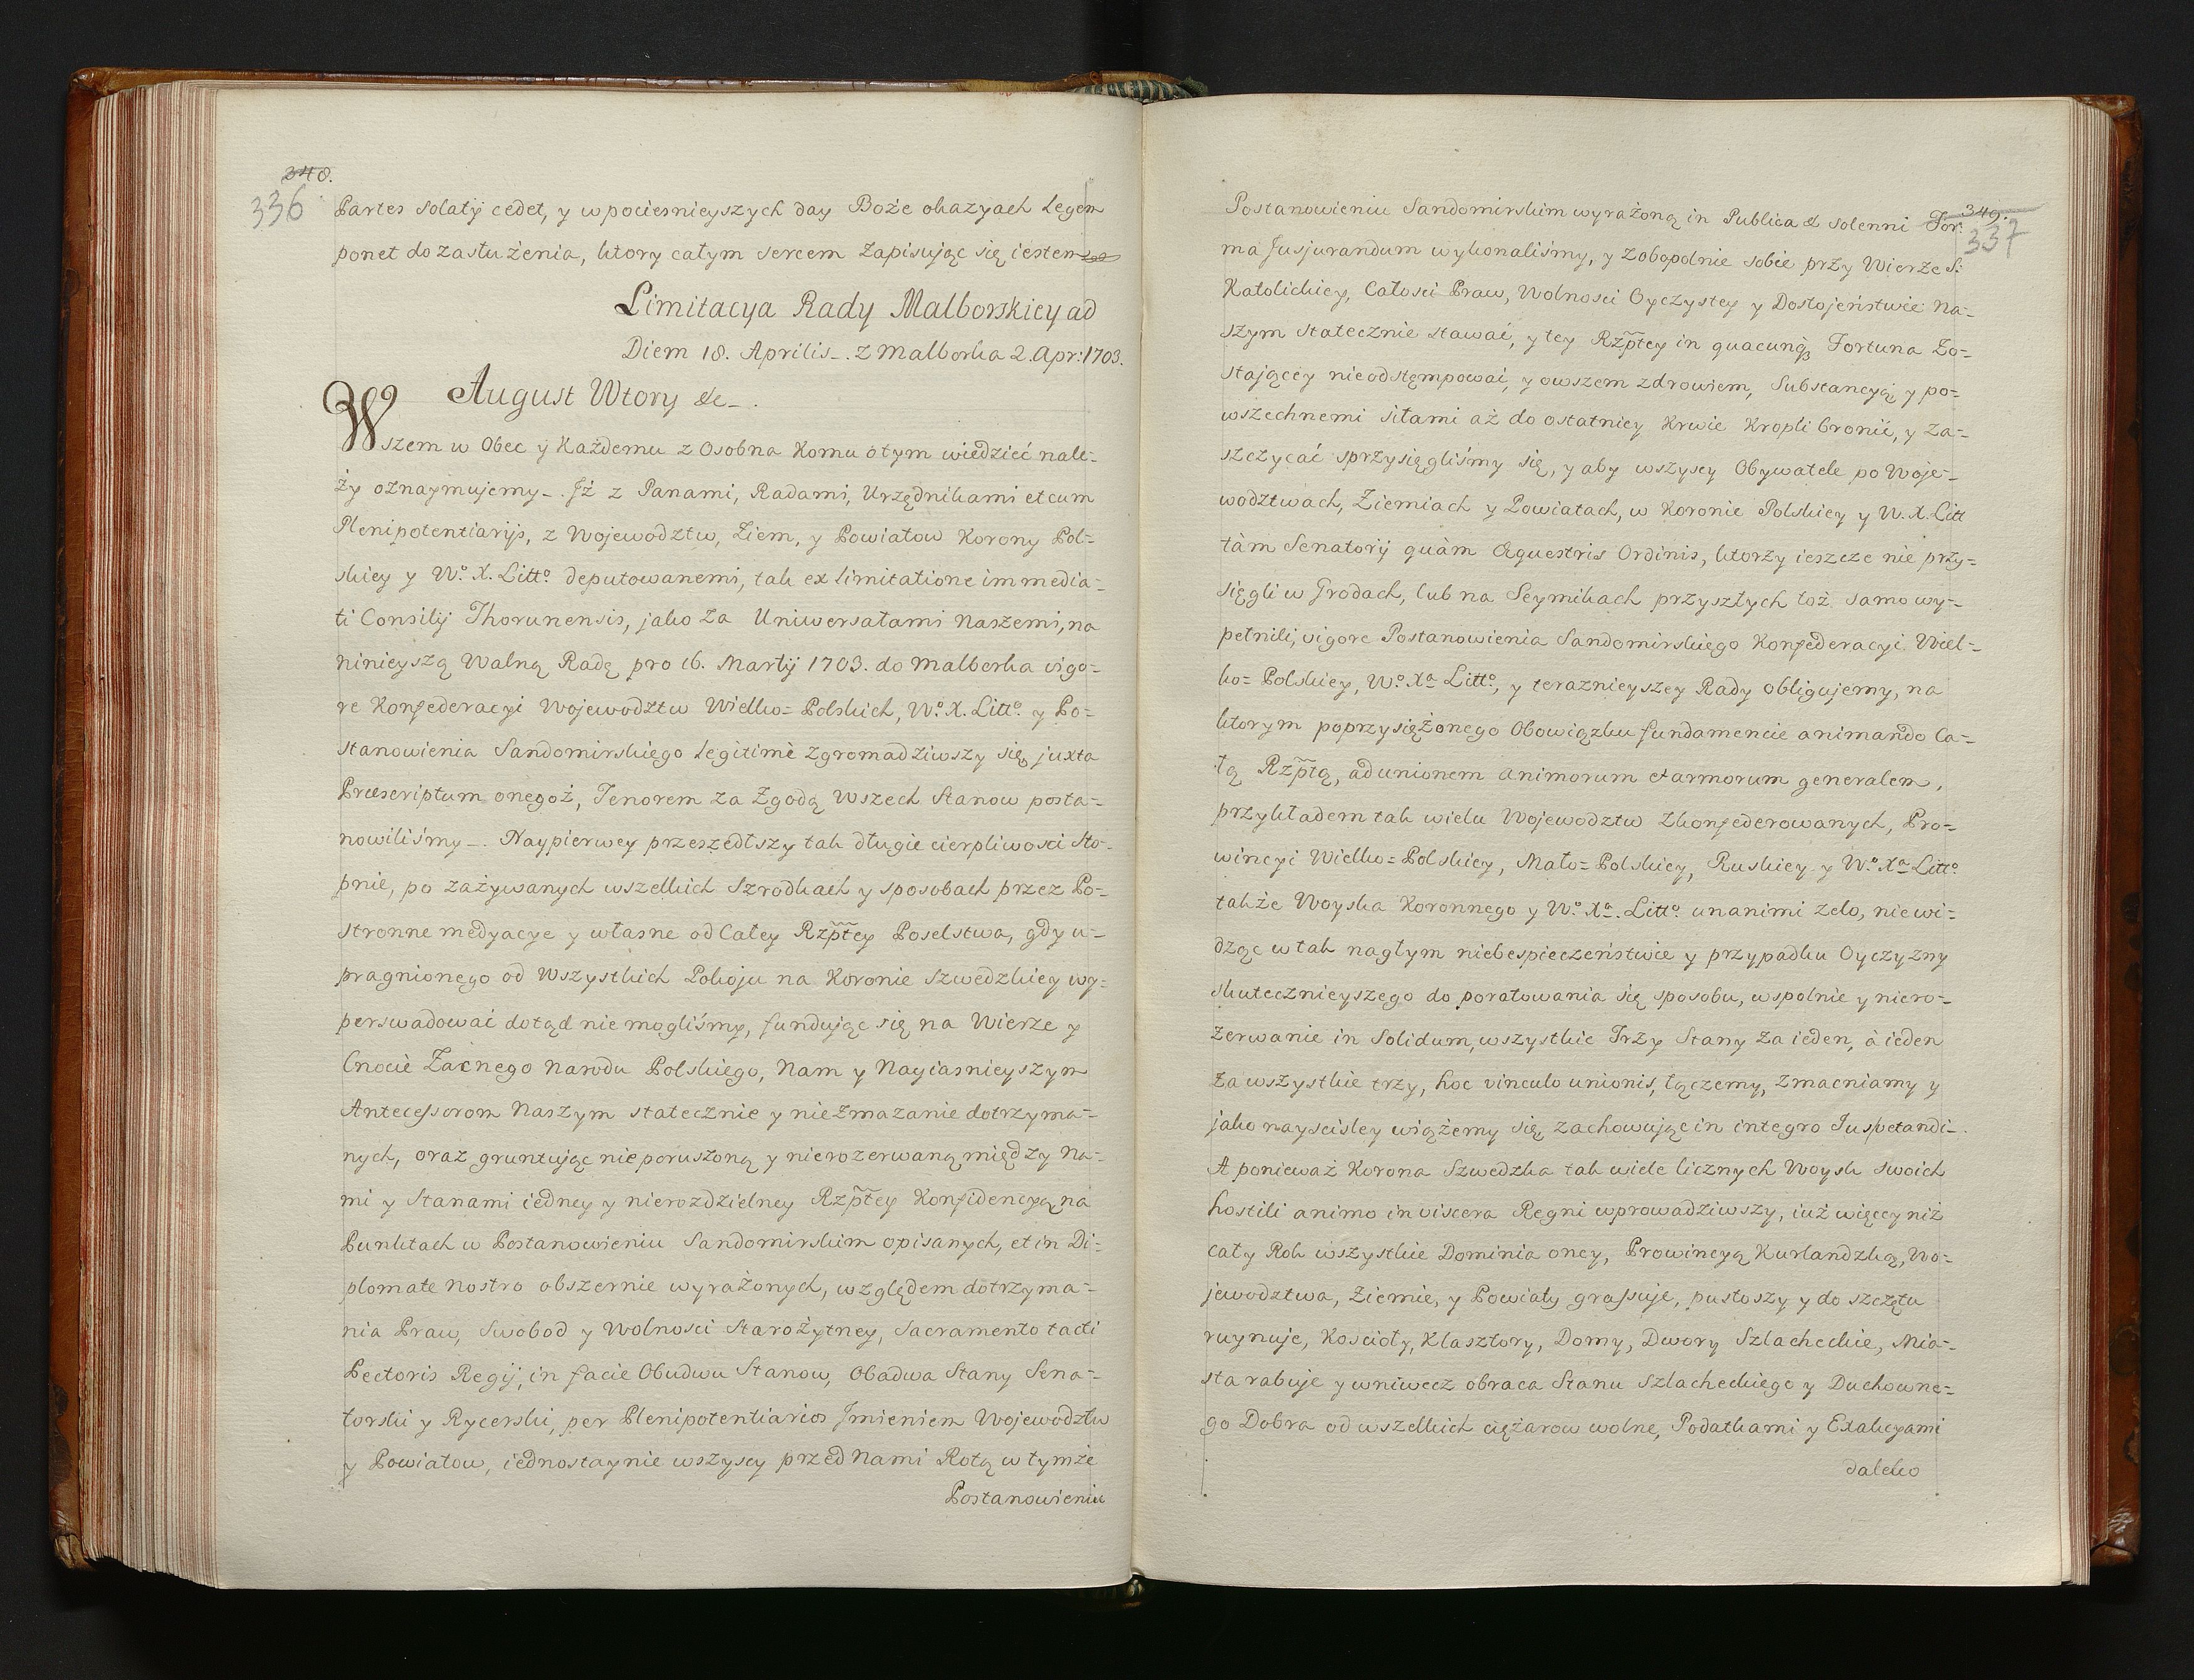 348.
336
Partes solatÿ cedet, y w pociesnieyszych day Boże okazyach Legem
ponet do zasłużenia, ktory całym sercem zapisując się iestem
Limitacya Rady Malborskiey ad
Diem 18. Aprilis_. z Malborka 2. Apr: 1703.
August Wtory &c_.
Wszem w Obec ÿ Każdemu z Osobna Komu o tym wiedzieć nale=
ży oznaymujemy_. Jż z Panami, Radami, Urzędnikami et cum
Plenipotentiarÿs, z Wojewodztw, Ziem, y Powiatow Korony Pol=
skiey y Wº. X. Littº. deputowanemi, tak ex limitatione immedia=
ti Consilÿ Thorunensis, jako za Uniwersałami Naszemi, na
ninieyszą Walną Radę pro 16. Martÿ 1703. do Malborka vigo=
re Konfederacyi Wojewodztw Wielko=Polskich, Wº. X. Littº. y Po=
stanowienia Sandomirskiego legitimè zgromadziwszy się, juxta
Præscriptum onegoż, Tenorem za Zgodą Wszech Stanow posta=
nowiliśmy_. Naypierwey przeszedłszy tak długie cierpliwosci sto=
pnie, po zażywanych wszelkich szrodkach y sposobach przez Po=
stronne medyacye y własne od Całey Rzptey Poselstwa, gdy u=
pragnionego od Wszystkich Pokoju na Koronie Szwedzkiey wy=
perswadować dotąd nie mogliśmy, fundując się na Wierze y
Cnocie Zacnego Narodu Polskiego, Nam y Nayiasnieyszym
Antecessorom Naszym statecznie y niezmazanie dotrzyma=
nych, oraz gruntując nieporuszoną y nierozerwaną między Na=
mi y Stanami iedney y nierozdzielney Rzptey Konfidencyą na
Punktach w Postanowieniu Sandomirskim opisanych, et in Di=
plomate nostro obszernie wyrażonych, względem dotrzyma=
nia Praw, Swobod y Wolnosci Starożytney, Sacramento tacti
Pectoris Regÿ, in facie Obudwu Stanow, Obadwa Stany Sena=
torski y Rycerski, per Plenipotentiarios Jmieniem Wojewodztw
y Powiatow, iednostaynie wszyscy przed Nami Rotą w tymże
Postanowieniu
349.
337
Postanowieniu Sandomirskim wyrażoną in Publica & solenni For:
ma Jusjurandum wykonaliśmy, y zobopolnie sobie przy Wierze S.
Katolickiey, Całosci Praw, Wolnosci Oyczystey y Dostojeństwie Na=
szym statecznie stawać, y tey Rzptey in quacunq₃ Fortuna Zo=
stającey nieodstęmpować, y owszem zdrowiem, Substancyą y po=
wszechnemi siłami aż do ostatniey Krwie Kropli bronić, y za=
szczycać sprzysięgliśmy się, y aby wszyscy Obywatele po Woje=
wodztwach, Ziemiach y Powiatach, w Koronie Polskiey y W. X. Litt
tàm Senatorÿ quàm Equestris Ordinis, ktorzy ieszcze nie przy=
sięgli w Grodach, lub na Seymikach przyszłych toż samo wy=
pełnili, vigore Postanowienia Sandomirskiego Konfederacyi Wiel=
ko=Polskiey, Wº. Xª Littº., y teraznieyszey Rady obligujemy, na
ktorym poprzysiężonego Obowiązku fundamencie animando Ca=
łą Rzptą, ad unionem animorum et armorum generalem,
przykładem tak wielu Wojewodztw Zkonfederowanych, Pro=
wincyi Wielko=Polskiey, Mało=Polskiey, Ruskiey y Wº. Xª Littº.
także Woyska Koronnego y Wº. Xª. Littº. unanimi zelo, nie wi=
dząc w tak nagłym niebespieczeństwie y przypadku Oyczyzny
skutecznieyszego do poratowania się sposobu, wspolnie y niero=
zerwanie in Solidum, wszystkie Trzy Stany za ieden, à ieden
za wszystkie trzy, hoc vinculo unionis, łączemy, zmacniamy y
jako nayscisley wiążemy się, zachowując in integro Jus petandi_.
A ponieważ Korona Szwedzka tak wiele licznych Woysk swoich
hostili animo in viscera Regni wprowadziwszy, iuż więcey niż
cały Rok wszystkie Dominia oney, Prowincyą Kurlandzką, Wo=
jewodztwa, Ziemie, y Powiaty grassuje, pustoszy y do szczętu
ruynuje, Koscioły, Klasztory, Domy, Dwory Szlacheckie, Mia=
sta rabuje y wniwecz obraca Stanu Szlacheckiego y Duchowne=
go Dobra od wszelkich ciężarow wolne, Podatkami y Exakcyami
daleko